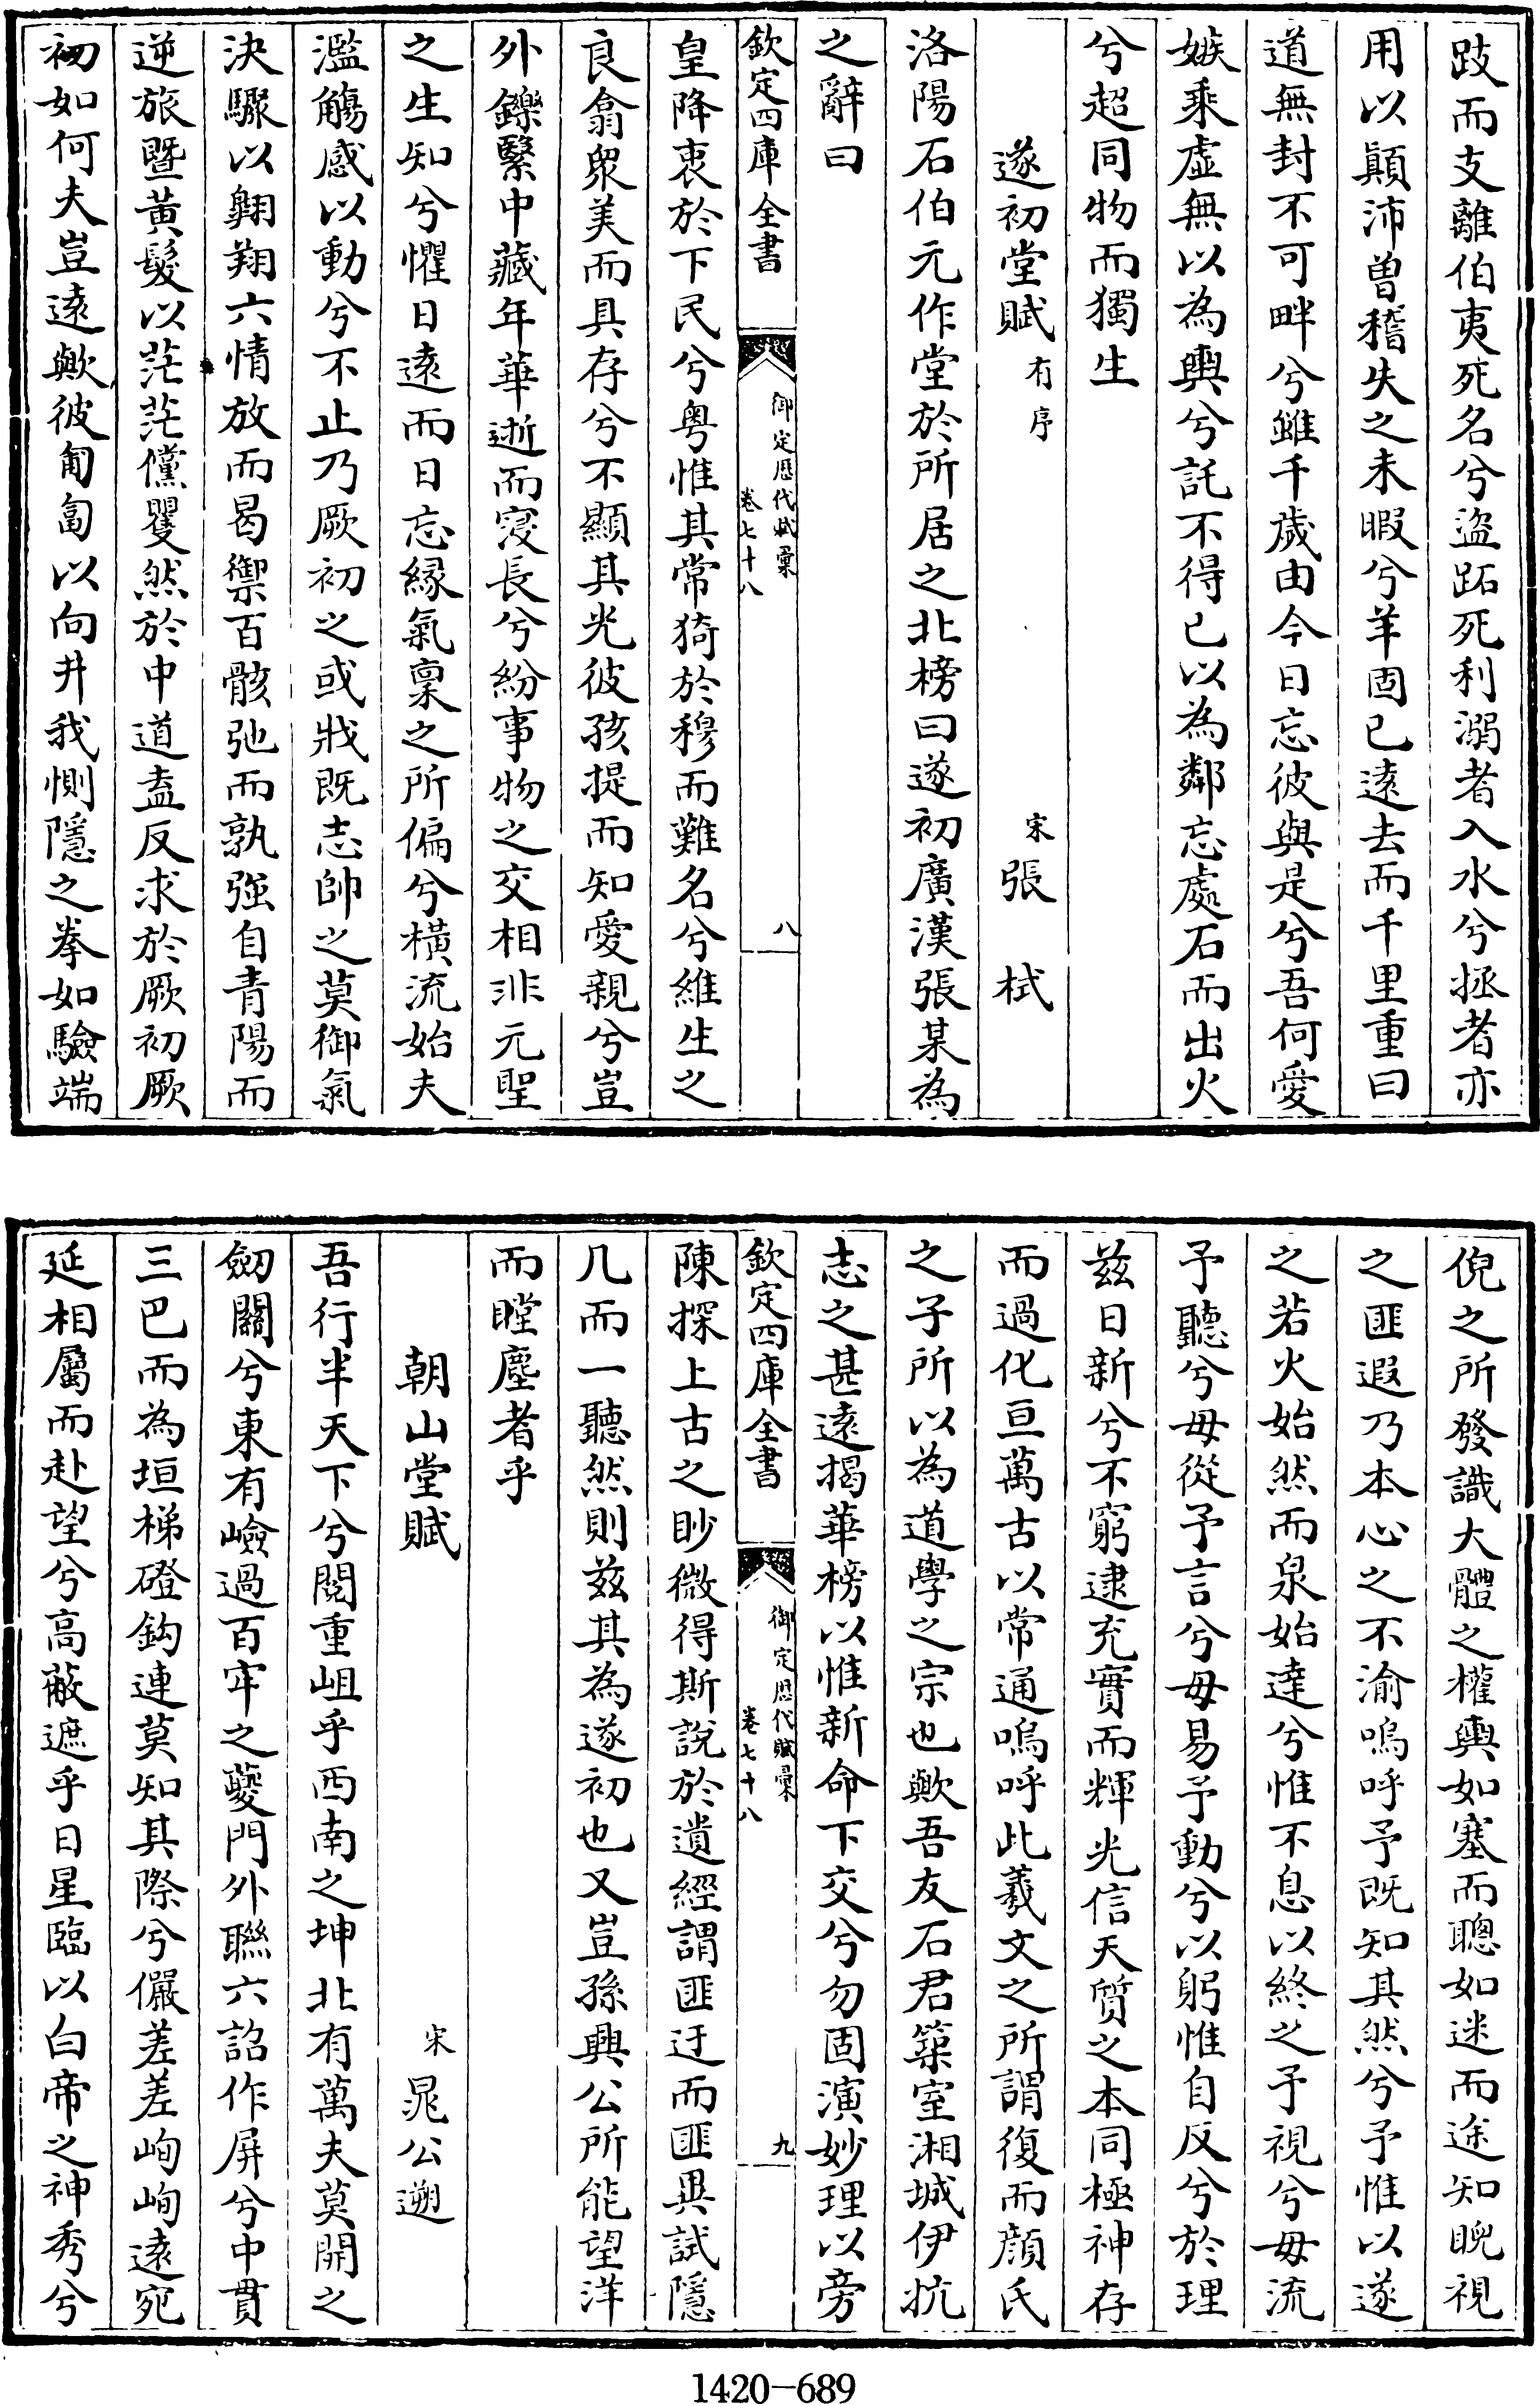 跂而支離伯夷死名兮盜跖死利溺者入水兮拯者亦
用以顛沛曽稽失之未暇兮羊固已逺去而千里重曰
道無封不可畔兮雖千歲由今日忘彼與是兮吾何愛
嫉乘虚無以為輿兮託不得已以為鄰忘處石而出火
兮超同物而獨生
遂初堂賦有序 宋張栻
洛陽石伯元作堂於所居之北榜曰遂初廣漢張某為
之辭曰
欽定四庫全書 御定歴代賦彚 卷七十八 八
皇降衷於下民兮粤惟其常猗於穆而難名兮維生之
良翕衆美而具存兮不顯其光彼孩提而知愛親兮豈
外鑠繄中藏年華逝而寖長兮紛事物之交相非元聖
之生知兮懼日逺而日忘縁氣稟之所偏兮横流始夫
濫觴感以動兮不止乃厥初之或戕既志帥之莫御氣
決驟以翺翔六情放而曷禦百骸弛而孰强自青陽而
逆旅暨黄髮以茫茫儻矍然於中道盍反求於厥初厥
初如何夫豈逺歟彼匍匐以向井我惻隱之拳如驗端
倪之所發識大體之權輿如塞而聰如迷而途知睨視
之匪遐乃本心之不渝嗚呼予既知其然兮予惟以遂
之若火始然而泉始達兮惟不息以終之予視兮毋流
予聽兮毋從予言兮毋易予動兮以躬惟自反兮於理
兹日新兮不窮逮充實而輝光信天質之本同極神存
而過化亘萬古以常通嗚呼此羲文之所謂復而顔氏
之子所以為道學之宗也歟吾友石君築室湘城伊抗
志之甚逺揭華榜以惟新命下交兮勿固演妙理以旁
欽定四庫全書 御定歴代賦彚 卷七十八 九
陳探上古之眇微得斯説於遺經謂匪迂而匪異試隱
几而一聽然則兹其為遂初也又豈孫興公所能望洋
而瞠塵者乎
朝山堂賦 宋晁公遡
吾行半天下兮閲重岨乎西南之坤北有萬夫莫開之
劒關兮東有嶮過百牢之夔門外聯六詔作屏兮中貫
三巴而為垣梯磴鈎連莫知其際兮儼差差峋峋逺宛
延相屬而赴望兮高蔽遮乎日星臨以白帝之神秀兮
1420-689